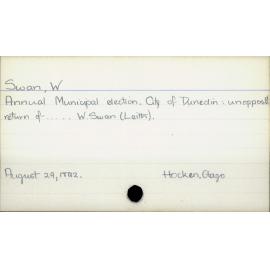 Swan, W
Annual Municipal election. City of Dunedin: unopposed
return of ..... W. Swan (Leith).
August 29, 1882.
Hocken, Otago